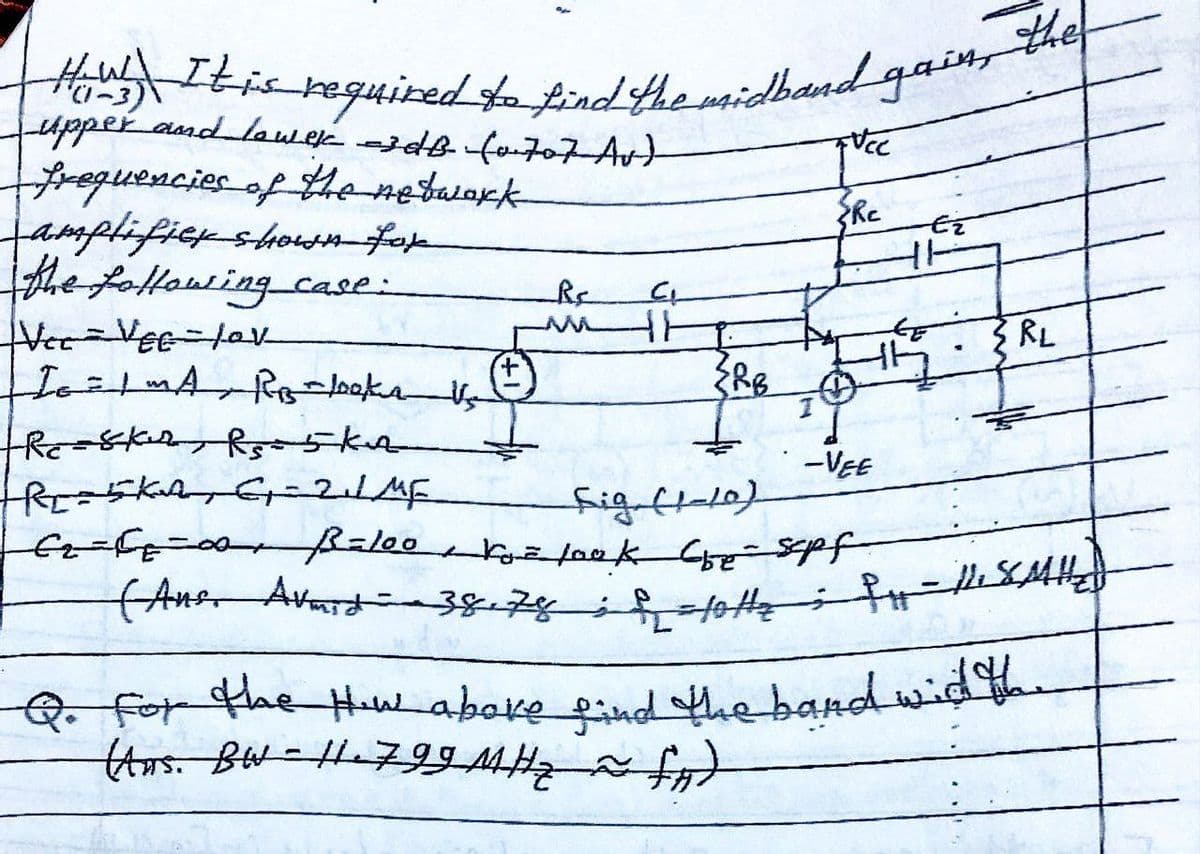 H.W It is required to find the midband gain, the
(1-3)
upper and lower -3dB (0.707 Av)
frequencies of the network
amplifier shown for
the following case:
Vcc = VEE = 10V
Ic = 1mA, RB = 100kΩ
Rc = 8kΩ, Rs = 5kΩ
RL = 5kΩ, C1 = 2.1 MF
C2 = CE = ∞, β = 100, ro = 100k Cbe = 5cpf
(Ans. Avmid = -38.78 ; fL = 10Hz ; fH = 11.8MHz)
Vcc
Rc
C2
Rs C1
CE
RL
RB
Vs
+
-
I
-VEE
Fig.(1-10)
Q. For the H.w above find the band width.
(Ans. BW = 11.799 MHz ≈ fH)